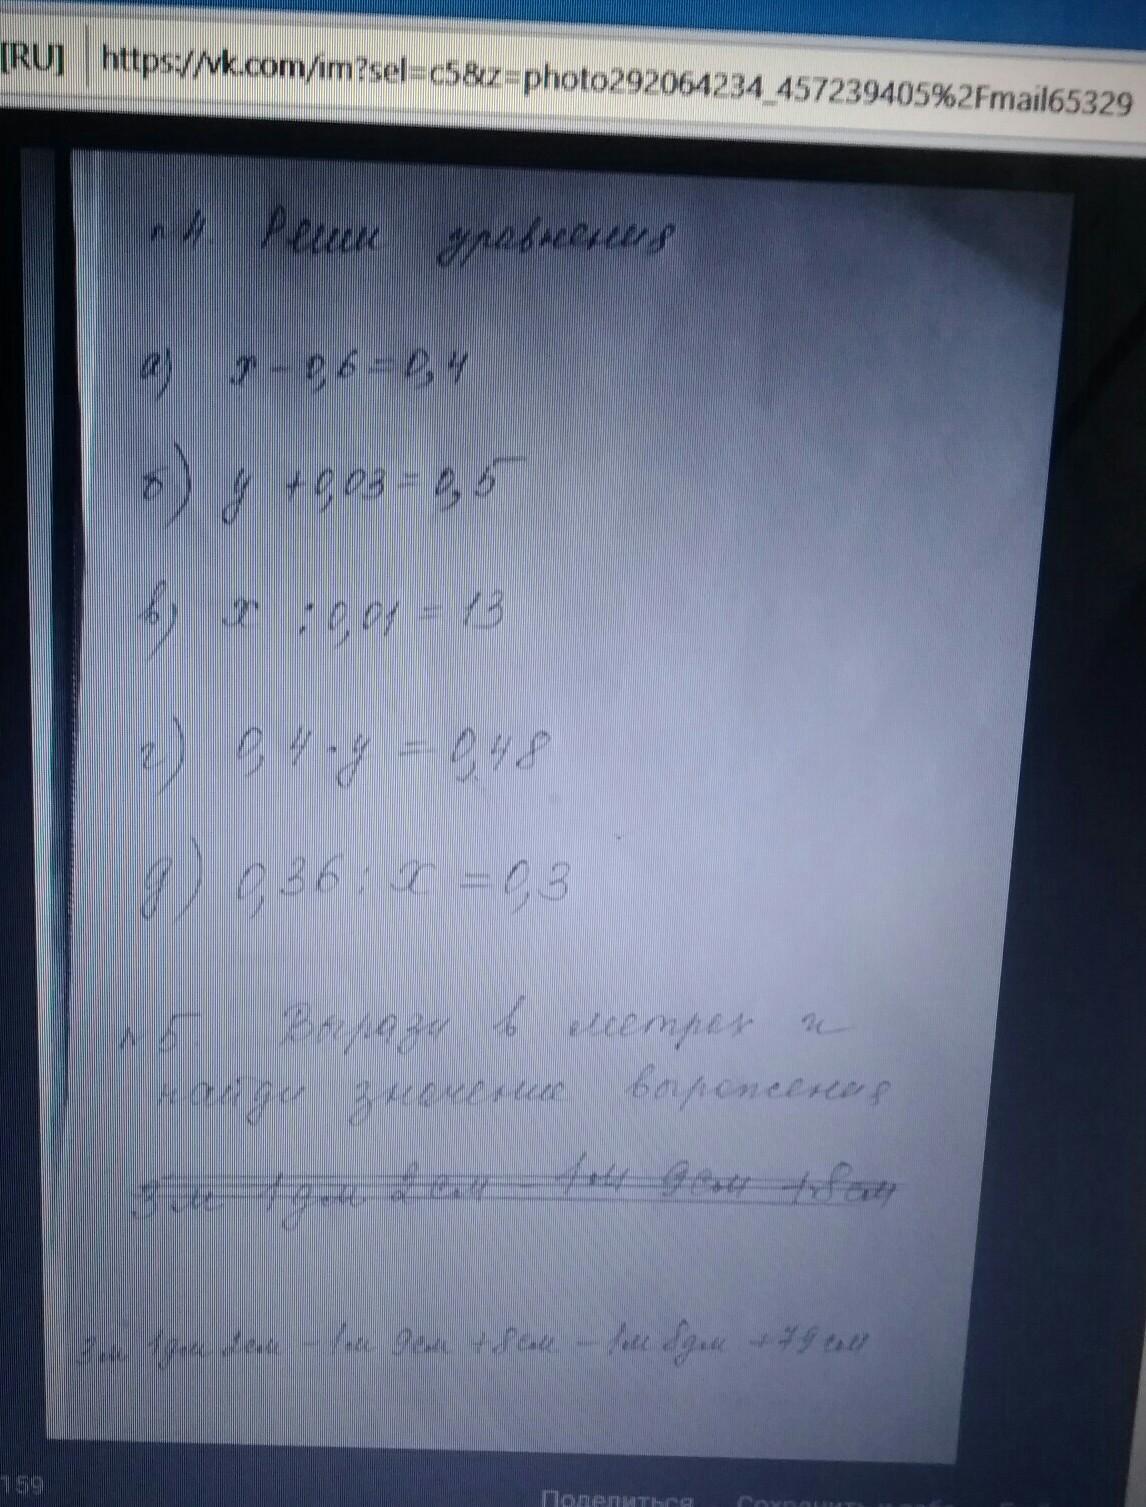 [RU] https://vk.com/im?sel=c5&z=photo292064234_457239405%2Fmail65329
n 4. Реши уравнения
а) x - 0,6 = 0,4
б) y + 0,03 = 0,5
в) x : 0,01 = 13
г) 0,4 · y = 0,48
д) 0,36 : x = 0,3
n 5. Вырази в метрах и
найди значение выражения
3м 1дм 2см - 1м 9см + 8см
3м 1дм 2см - 1м 9см + 8см - 1м 8дм + 79см
159
Поделиться